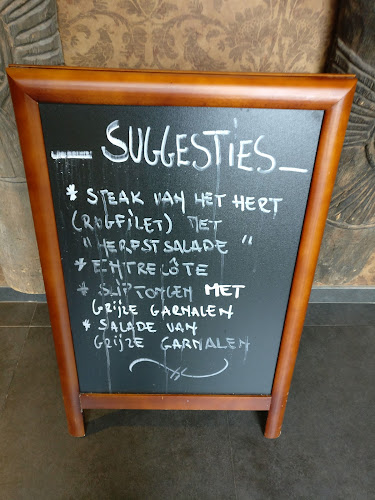 SUGGESTIES
* STEAK VAN HET HERT
(RUGFILET) MET
"HERFSTSALADE"
* ENTRECÔTE
* SLIPTONGEN MET
GRIJZE GARNALEN
* SALADE VAN
GRIJZE GARNALEN